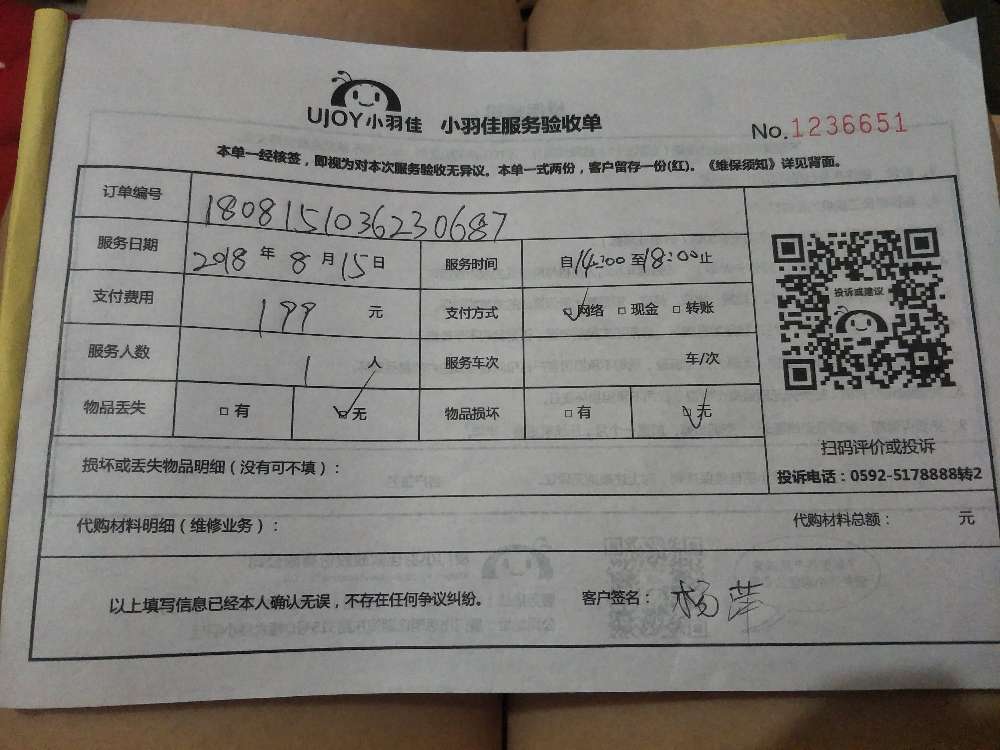 UJOY小羽佳 小羽佳服务验收单
No.1236651
本单一经核签，即视为对本次服务验收无异议。本单一式两份，客户留存一份(红)。《维保须知》详见背面。
订单编号 1808151036230687
服务日期 2018年8月15日 服务时间 自14:00至18:00止
支付费用 199元 支付方式 ☑网络 □现金 □转账
服务人数 1人 服务车次 车/次
物品丢失 □有 ☑无 物品损坏 □有 ☑无
投诉或建议
扫码评价或投诉
投诉电话：0592-5178888转2
损坏或丢失物品明细（没有可不填）：
代购材料明细（维修业务）： 代购材料总额： 元
以上填写信息已经本人确认无误，不存在任何争议纠纷。 客户签名：杨萍